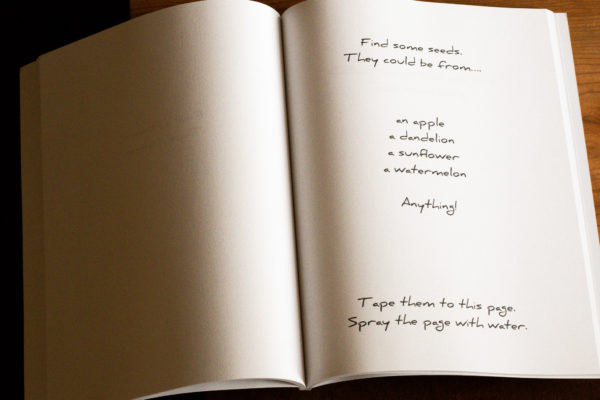 Find some seeds.
They could be from....
an apple
a dandelion
a sunflower
a watermelon
Anything!
Tape them to this page.
Spray the page with water.